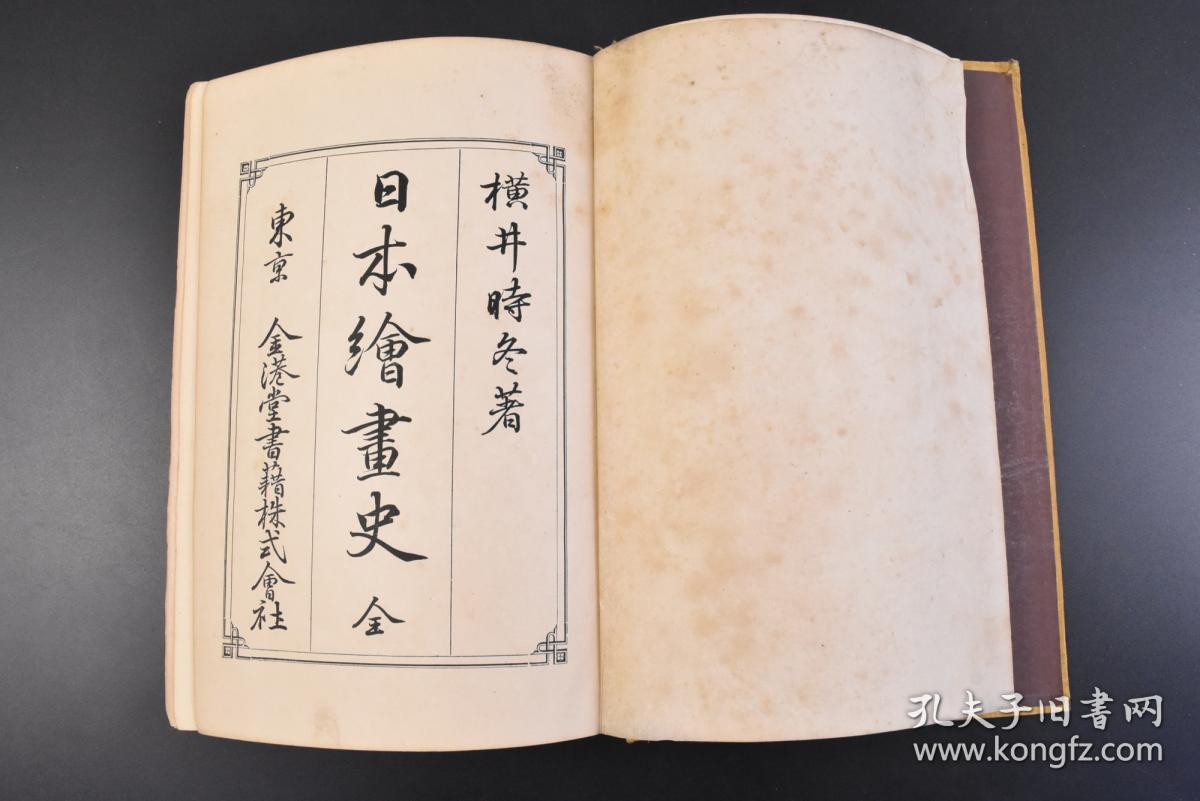 横井時冬著
日本繪畫史 全
東京 金港堂書籍株式會社
孔夫子旧書网
www.kongfz.com